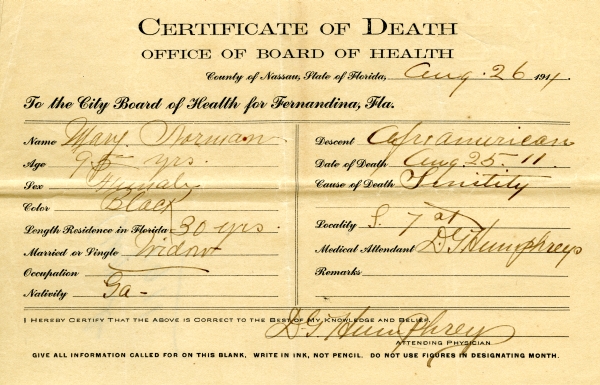 CERTIFICATE OF DEATH
OFFICE OF BOARD OF HEALTH
County of Nassau, State of Florida, Aug. 26 1911.
To the City Board of Health for Fernandina, Fla.
Name Mary Norman
Age 95 yrs.
Sex Female
Color Black
Length Residence in Florida 30 yrs.
Married or Single Widow
Occupation
Nativity Ga -
Descent Afroamerican
Date of Death Aug 25. 11
Cause of Death Senility
Locality S. 7 st
Medical Attendant D. G Humphreys
Remarks
I HEREBY CERTIFY THAT THE ABOVE IS CORRECT TO THE BEST OF MY KNOWLEDGE AND BELIEF.
D. G. Humphreys
ATTENDING PHYSICIAN.
GIVE ALL INFORMATION CALLED FOR ON THIS BLANK, WRITE IN INK, NOT PENCIL. DO NOT USE FIGURES IN DESIGNATING MONTH.